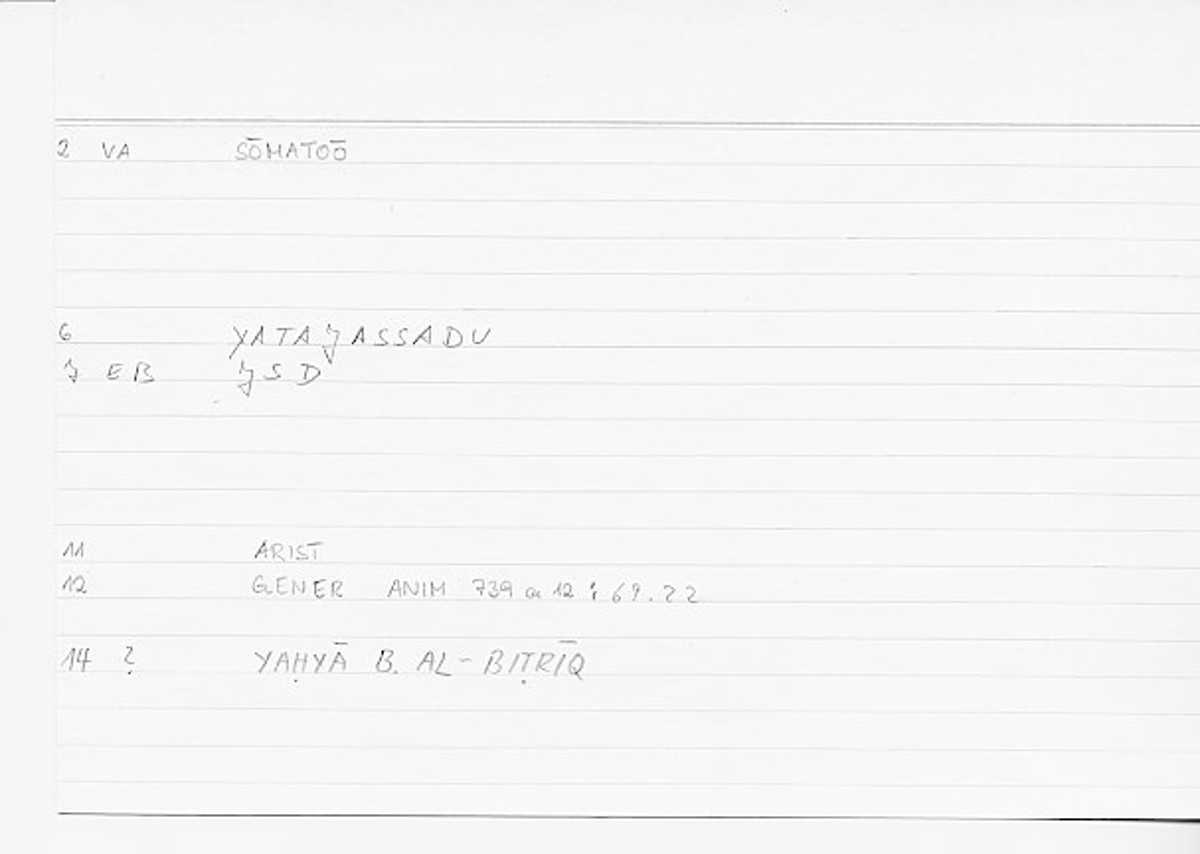 2 VA SŌMATOŌ
6 YATAǦASSADU
7 EB ǦSD
11 ARIST
12 GENER ANIM 739 a 12 ; 69.22
14 ? YAḤYĀ B. AL-BIṬRĪQ